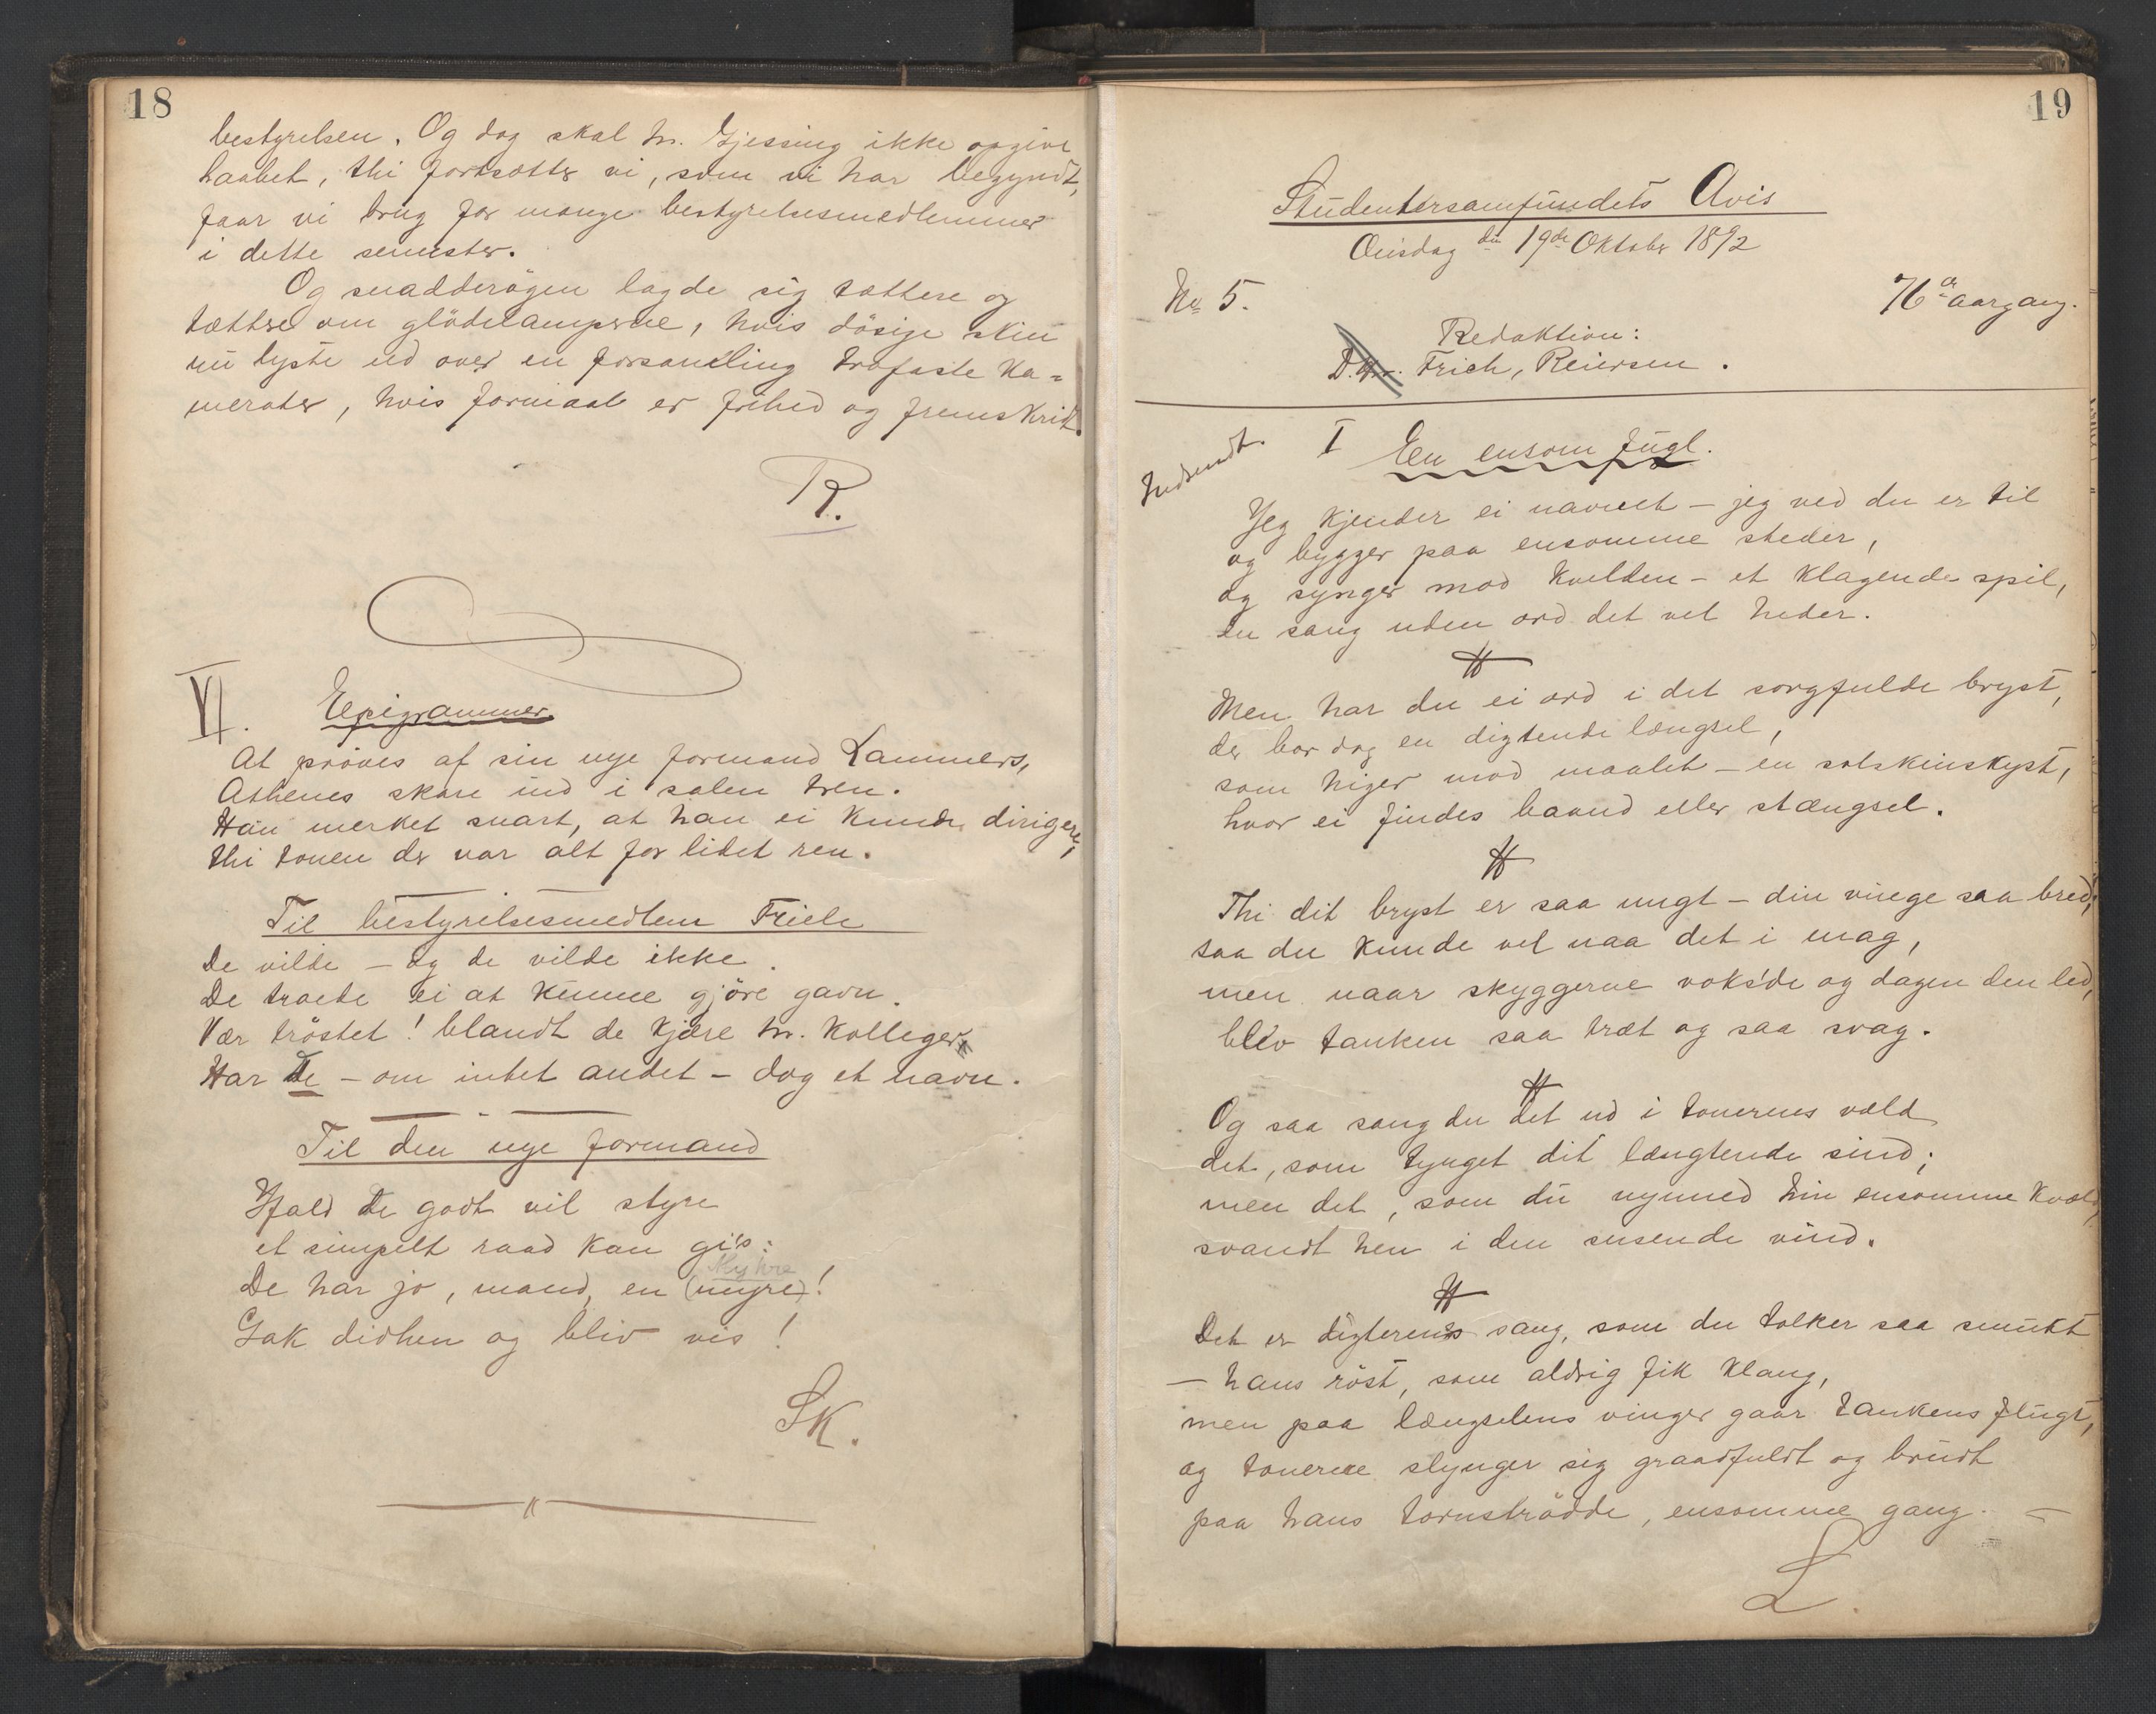 18
bestyrelsen. Og dog skal hr. Gjessing ikke opgive
haabet, thi fortsætter vi, som vi har begyndt,
faar vi brug for mange bestyrelsesmedlemmer
i dette semester.
Og snadderögen lagde sig tættere og
tættere om glödelamperne, hvis dösige skin
nu lyste ud over en forsamling trofaste ka=
merater, hvis formaal er frihed og fremskridt.
R.
VI. Epigrammer.
At pröves af sin nye formand Lammers,
Athenes skare ind i salen tren.
Han merket snart, at han ei kunde dirigere,
thi tonen der var alt for lidet ren.
Til bestyrelsesmedlem Friele
De vilde – og de vilde ikke.
De troede ei at kunne gjöre gavn.
Vær tröstet! blandt de kjære hr. kolleger
Har De – om intet andet – dog et navn.
Til den nye formand
Ifald De godt vil styre
et simpelt raad kan gi's:
De har jo, mand, en (myre)!
Myhre
Gak didhen og bliv vis!
SK.
19
Studentersamfundets Avis
Onsdag den 19de Oktober 1892
No 5.
76de aargang.
Redaktion:
Frich, Reiersen.
Indsendt.
I En ensom fugl.
Jeg kjender ei navnet – jeg ved du er til
og bygger paa ensomme steder,
og synger mod kvelden – et klagende spil,
en sang uden ord det vel heder.
Men har du ei ord i det sorgfulde bryst,
der bor dog en digtende længsel,
som higer mod maalet – en solskinskyst,
hvor ei findes baand eller stængsel.
Thi dit bryst er saa ungt – din vinge saa bred,
saa du kunde vel naa det i mag,
men naar skyggerne voks'de og dagen den led,
blev tanken saa træt og saa svag.
Og saa sang du det ud i tonernes væld
det, som tynget dit længtende sind;
men det, som du nynned hin ensomme kvæld,
svandt hen i den susende vind.
Det er digterens sang, som du tolker saa smukt
– hans röst, som aldrig fik klang,
men paa længselens vinger gaar tankens flugt,
og tonerne slynger sig graadfuldt og brudt
paa hans tornströdde, ensomme gang. –
L.